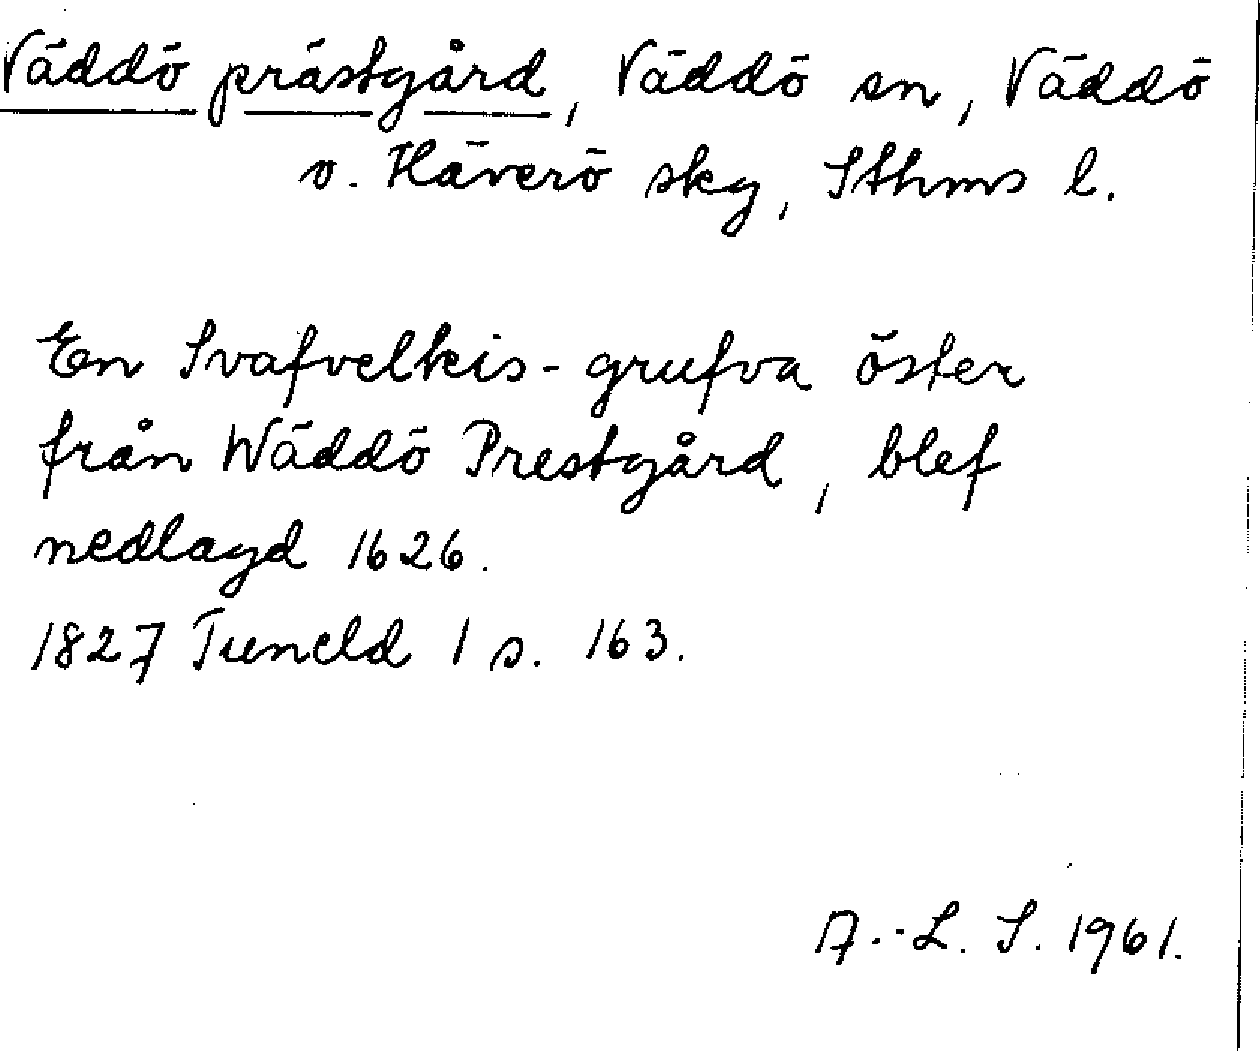 Väddö prästgård, Väddö sn, Väddö
o. Häverö skg, Sthms l.
En Svafvelkis-grufva öster
från Wäddö Prestgård, blef
nedlagd 1626.
1827 Tuneld 1 s. 163.
A.-L. S. 1961.